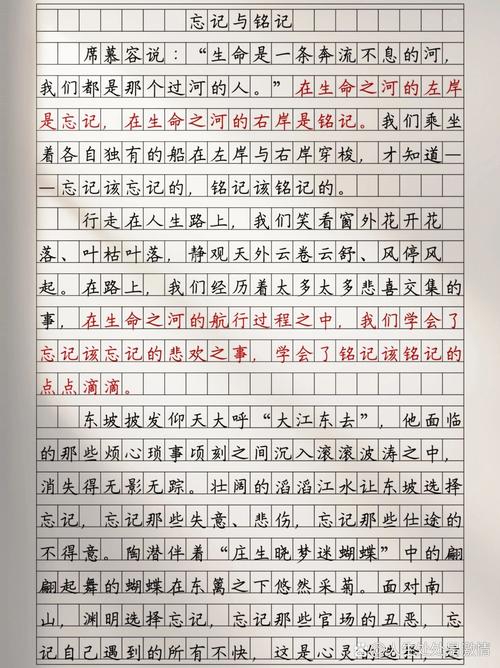 忘记与铭记
席慕容说：“生命是一条奔流不息的河，
我们都是那个过河的人。”在生命之河的左岸
是忘记，在生命之河的右岸是铭记。我们乘坐
着各自独有的船在左岸与右岸穿梭，才知道—
—忘记该忘记的，铭记该铭记的。
行走在人生路上，我们笑看窗外花开花
落、叶枯叶落，静观天外云卷云舒、风停风
起。在路上，我们经历着太多太多悲喜交集的
事，在生命之河的航行过程之中，我们学会了
忘记该忘记的悲欢之事，学会了铭记该铭记的
点点滴滴。
东坡披发仰天大呼“大江东去”，他面临
的那些烦心琐事顷刻之间沉入滚滚波涛之中，
消失得无影无踪。壮阔的滔滔江水让东坡选择
忘记，忘记那些失意、悲伤，忘记那些仕途的
不得意。陶潜伴着“庄生晓梦迷蝴蝶”中的翩
翩起舞的蝴蝶在东篱之下悠然采菊。面对南
山，渊明选择忘记，忘记那些官场的丑恶，忘
记自己遇到的所有不快，这是心灵的选择，是